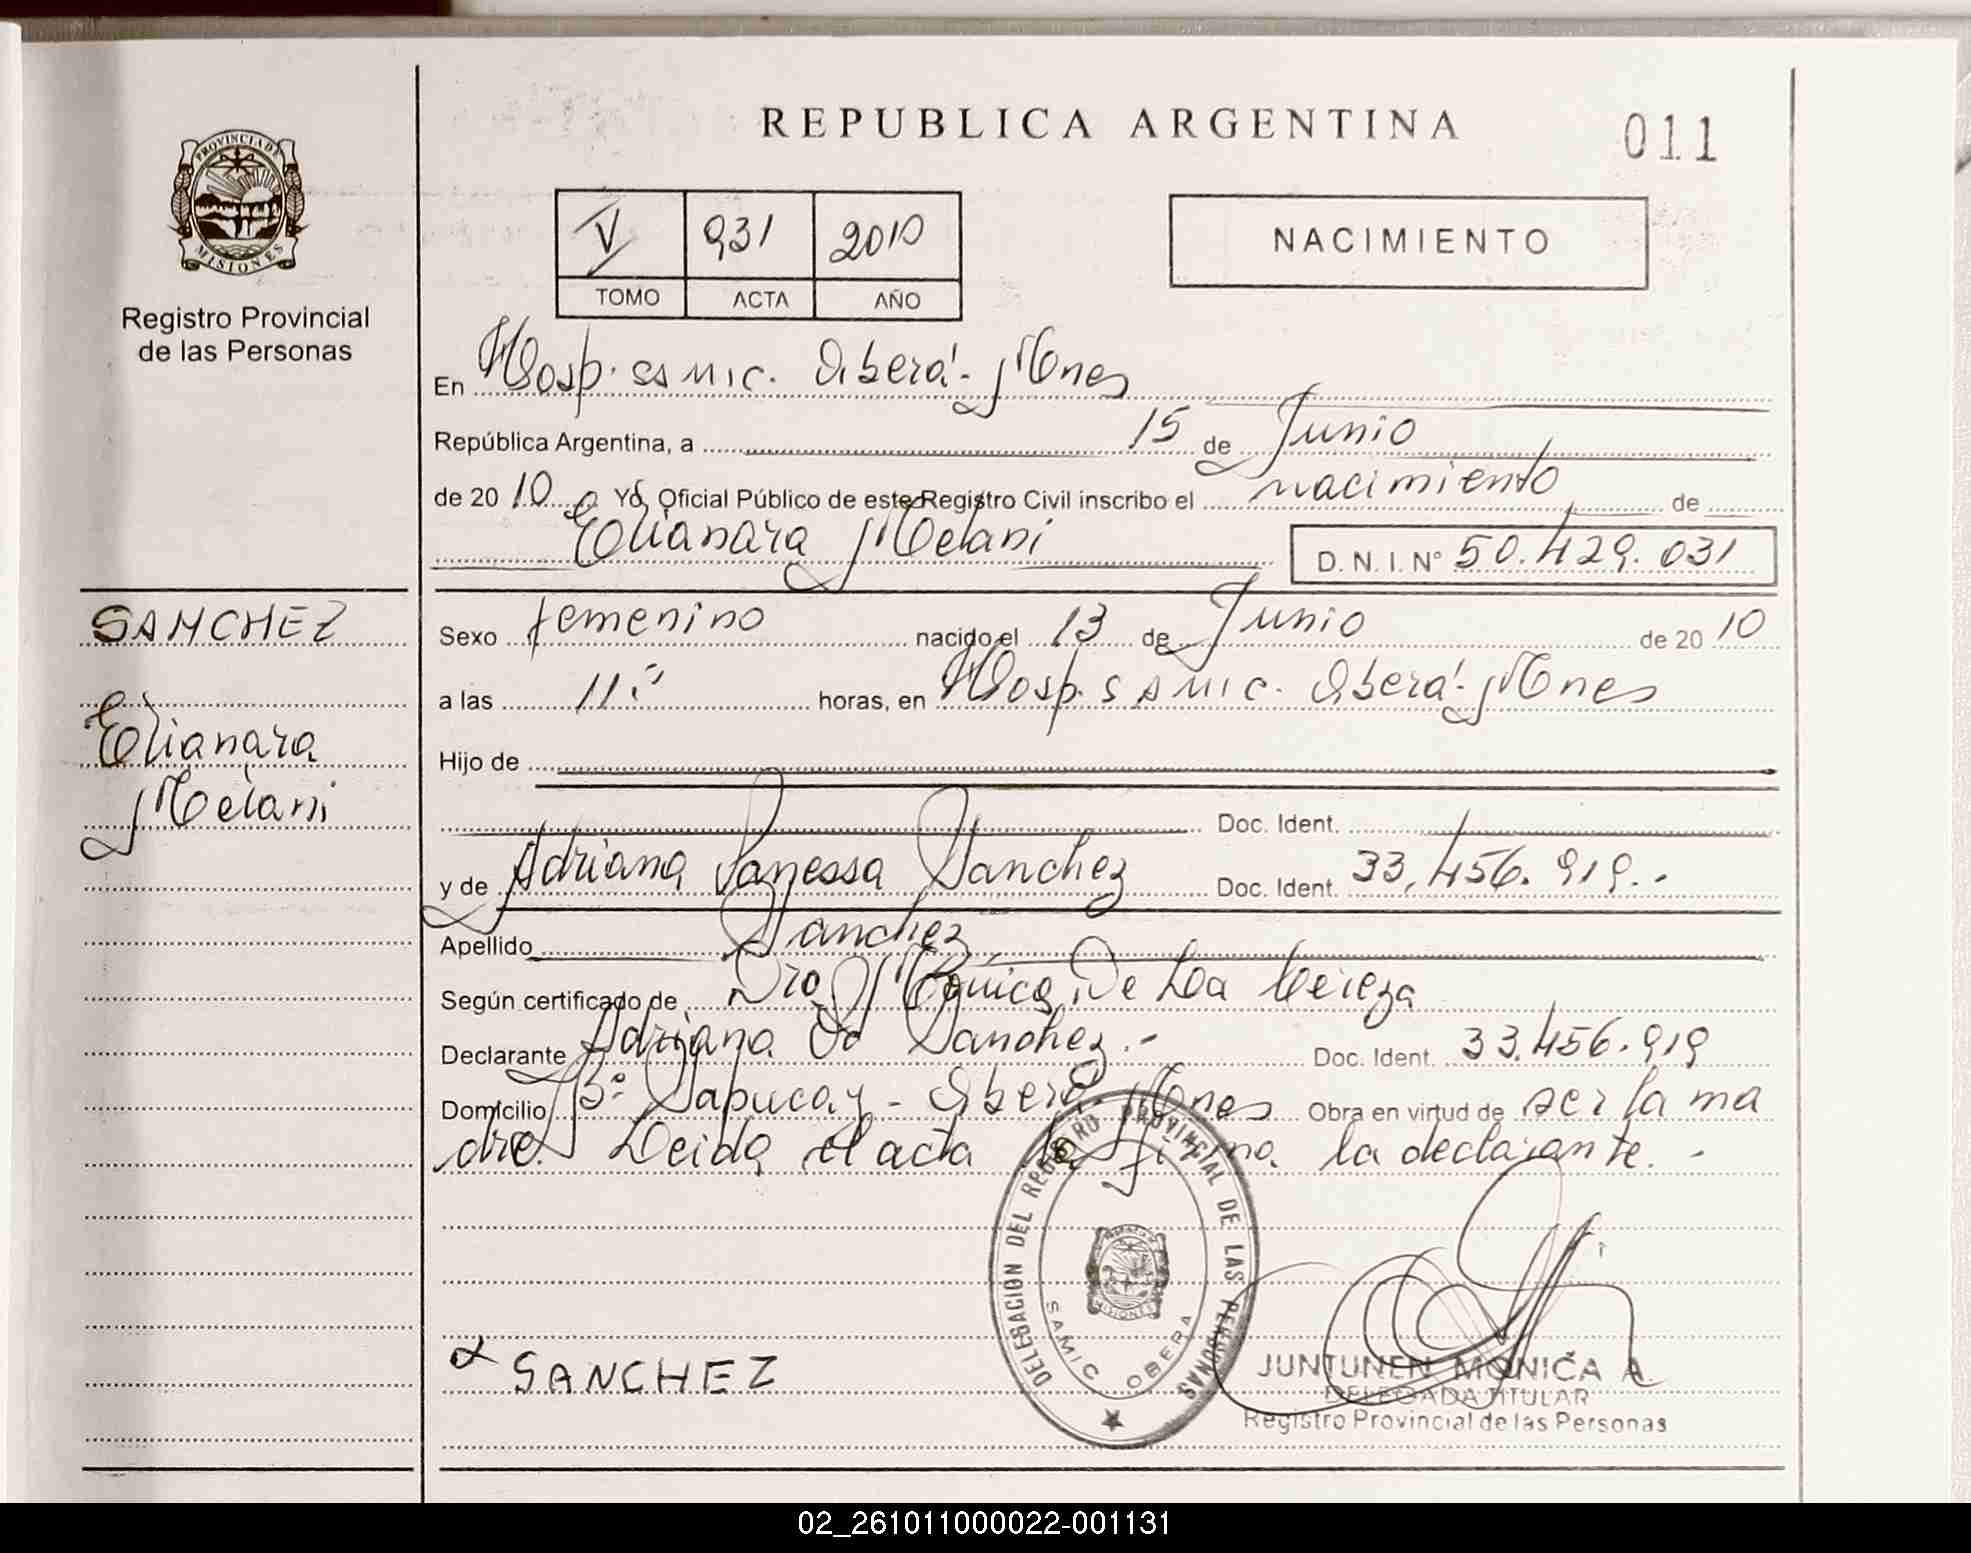 REPUBLICA ARGENTINA
011
PROVINCIA DE
MISIONES
Registro Provincial
de las Personas
V 931 2010
TOMO ACTA AÑO
NACIMIENTO
En Hosp. SAMIC. Oberá - Mnes
República Argentina, a 15 de Junio
de 20 10 Yo, Oficial Público de este Registro Civil inscribo el nacimiento de
Elianara Melani
D. N. I. Nº 50.429.031
SANCHEZ
Elianara
Melani
Sexo femenino nacido el 13 de Junio de 20 10
a las 11:" horas, en Hosp. SAMIC. Oberá - Mnes
Hijo de
Doc. Ident.
y de Adriana Vanessa Sanchez Doc. Ident. 33.456.919.-
Apellido Sanchez
Según certificado de Dra Mónica De La
Declarante Adriana V Sanchez.- Doc. Ident. 33.456.919
Domicilio Bº Sapucay - Oberá. Mnes Obra en virtud de ser la ma
dre. Leida el acta la firma la declarante. -
DELEGACION DEL REGISTRO PROVINCIAL DE LAS PERSONAS
MISIONES
SAMIC OBERA
SANCHEZ
JUNTUNEN MONICA A.
DELEGADA TITULAR
Registro Provincial de las Personas
02_261011000022-001131